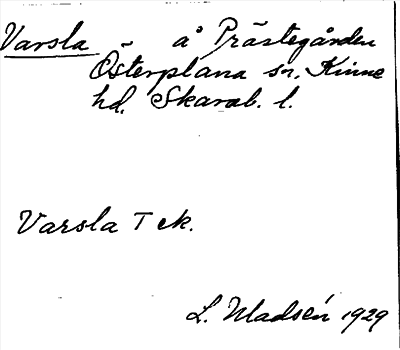 Varsla å Prästegården
Österplana sn. Kinne
hd. Skarab. l.
Varsla T ek.
L. Madsén 1929